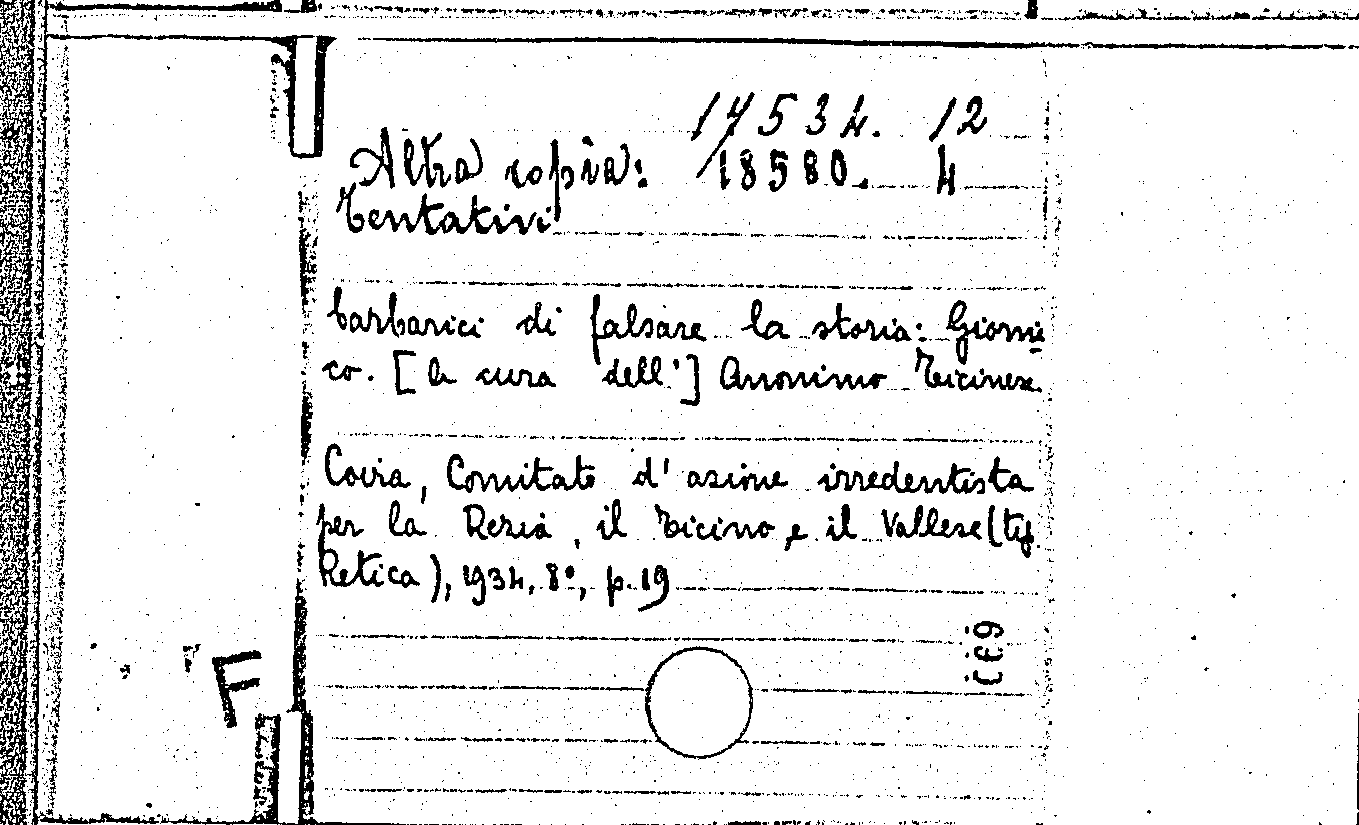 17534. 12
Altra copia: 18580. 4
Tentativi
barbarici di falsare la storia: Giorni
co. [a cura dell'] Anonimo Ticinese.
Coira, Comitato d'azione irredentista
per la Rezia, il Ticino e il Vallese (tip.
Retica), 1934, 8°, p. 19
F